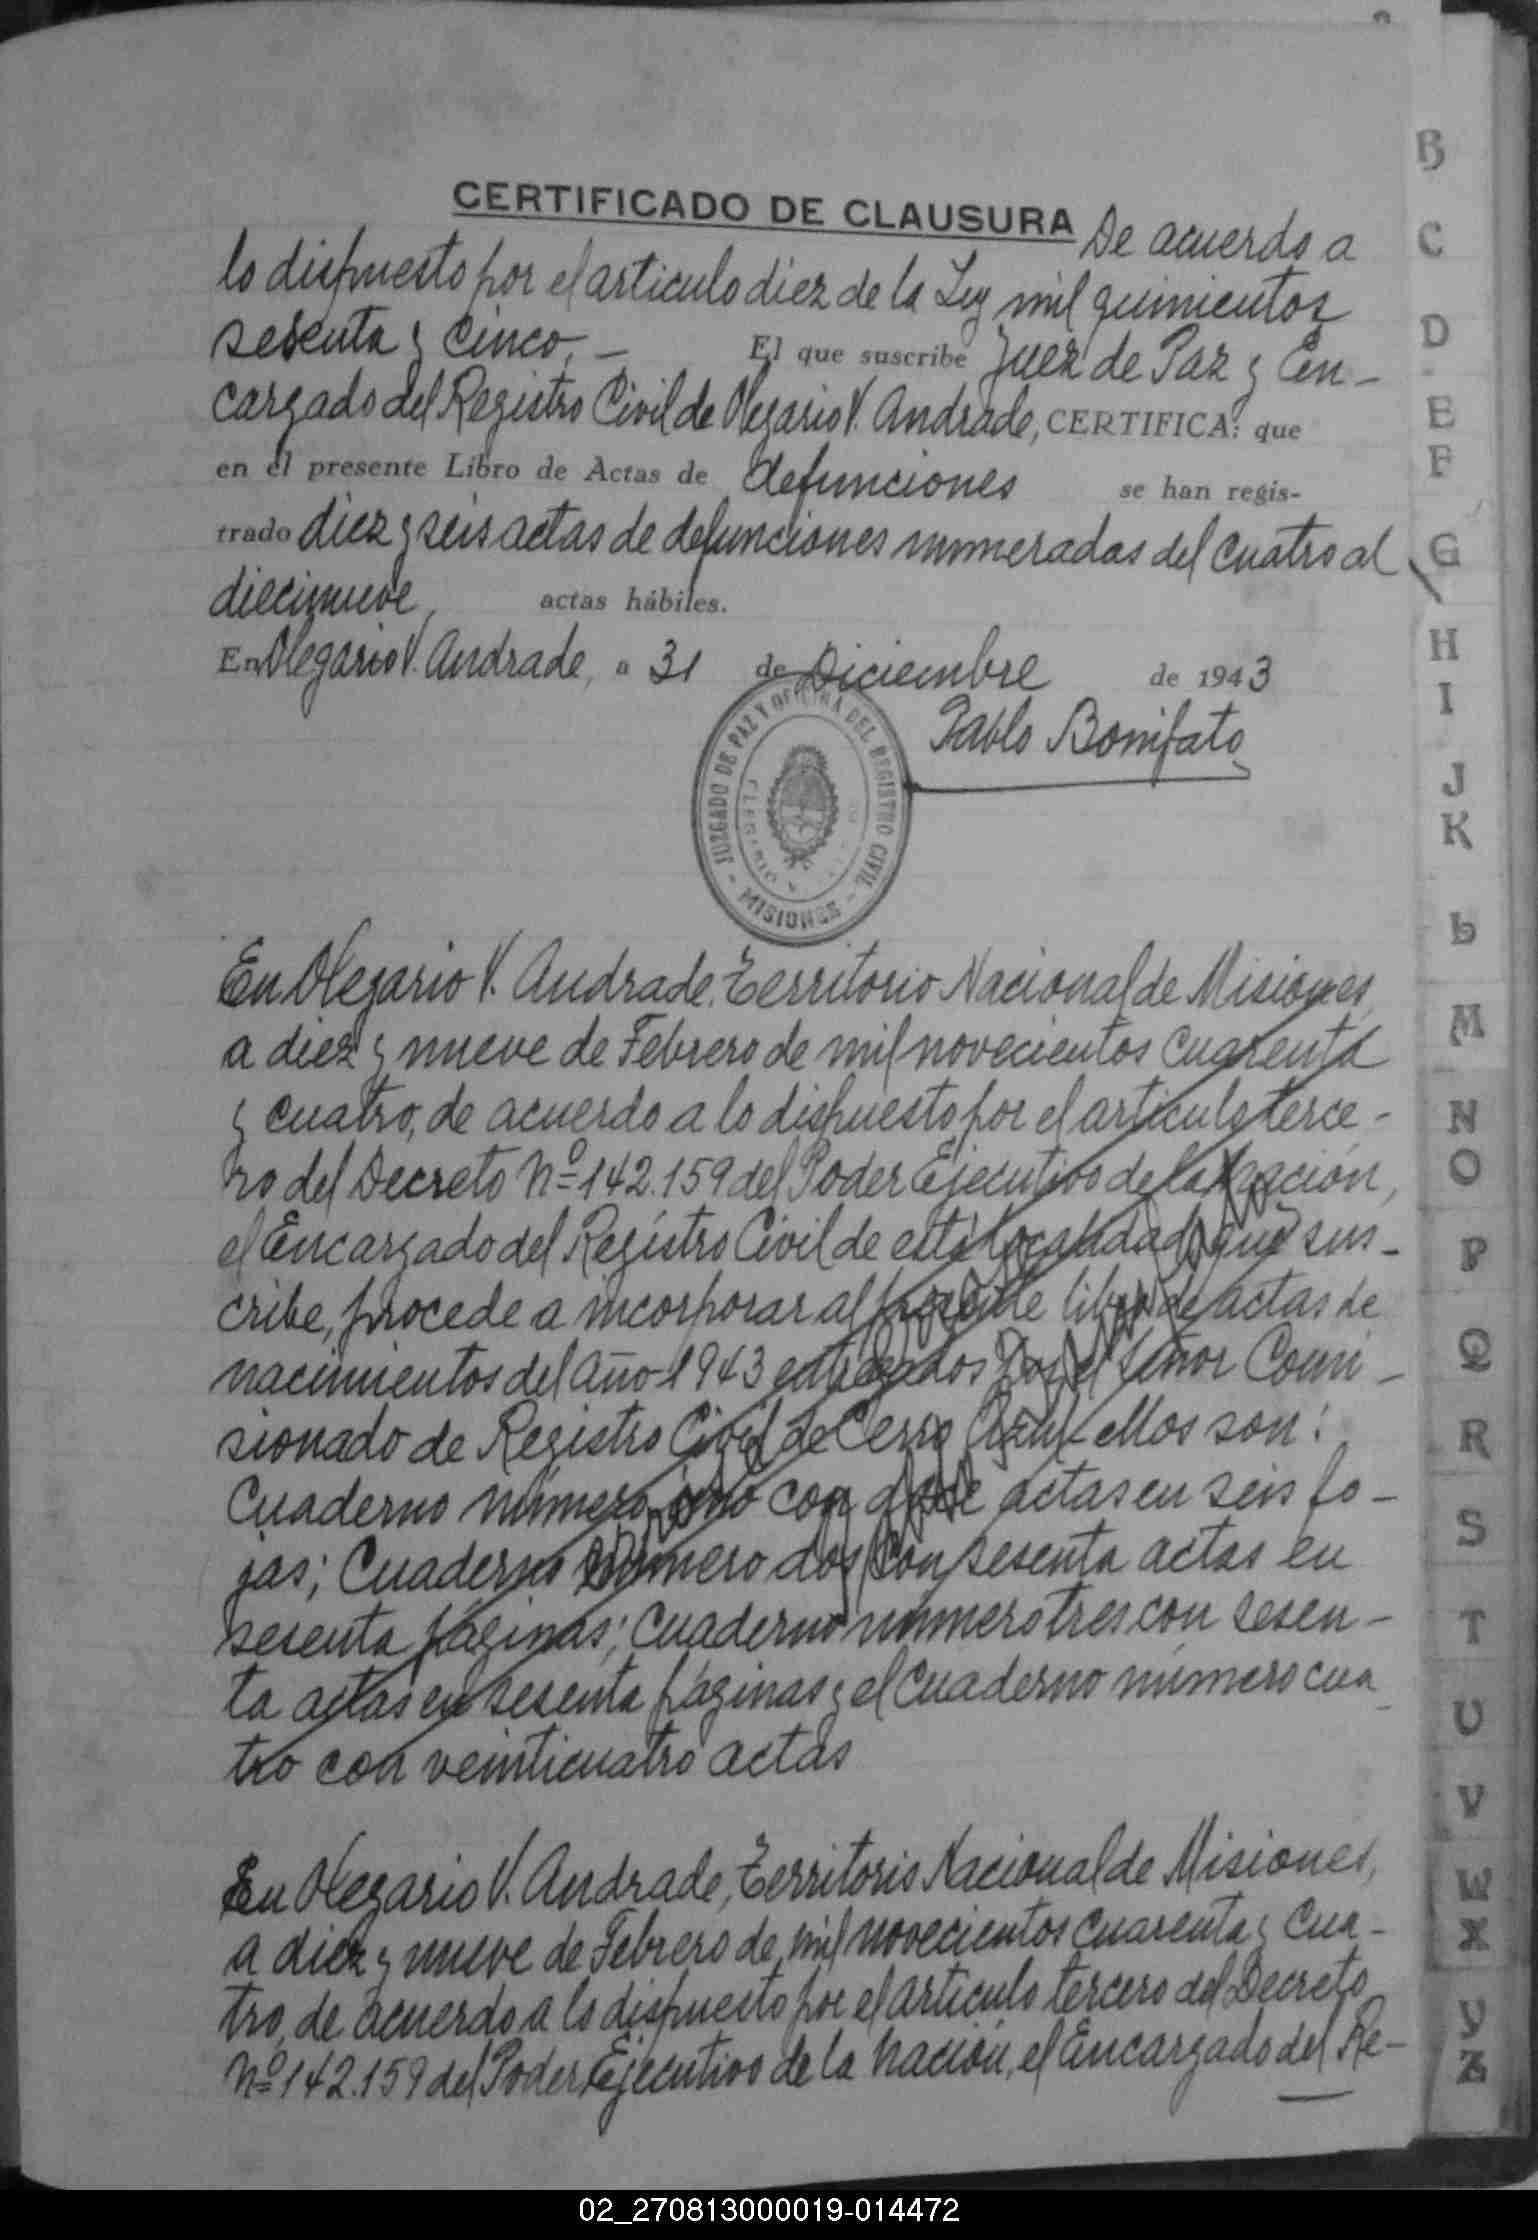 CERTIFICADO DE CLAUSURA De acuerdo a
lo dispuesto por el articulo diez de la Ley mil quinientos
sesenta y cinco, – El que suscribe Juez de Paz y En-
cargado del Registro Civil de Olegario V. Andrade, CERTIFICA: que
en el presente Libro de Actas de defunciones se han regis-
trado diez y seis actas de defunciones numeradas del cuatro al
diecinueve, actas hábiles.
En Olegario V. Andrade, a 31 de Diciembre de 1943
Pablo Bonifato
JUZGADO DE PAZ Y OFICINA DEL REGISTRO CIVIL
- MISIONES -
En Olegario V. Andrade, Territorio Nacional de Misiones,
a diez y nueve de Febrero de mil novecientos cuarenta
y cuatro, de acuerdo a lo dispuesto por el articulo terce-
ro del Decreto Nº 142.159 del Poder Ejecutivo de la Nación,
el Encargado del Registro Civil de esta localidad que sus-
cribe, procede a incorporar al presente libro de actas de
nacimientos del año 1943 entregados por el señor Comi-
sionado de Registro Civil de Cerro Azul ellos son:
Cuaderno número uno con doce actas en seis fo-
jas; Cuaderno número dos con sesenta actas en
sesenta páginas; Cuaderno número tres con sesen-
ta actas en sesenta páginas y el Cuaderno número cua
tro con veinticuatro actas
En Olegario V. Andrade, Territorio Nacional de Misiones,
a diez y nueve de Febrero de mil novecientos cuarenta y cua-
tro, de acuerdo a lo dispuesto por el articulo tercero del Decreto
Nº 142.159 del Poder Ejecutivo de la Nación, el Encargado del Re-
B
C
D
E
F
G
H
I
J
K
L
M
N
O
P
Q
R
S
T
U
V
W
X
Y
Z
02_270813000019-014472